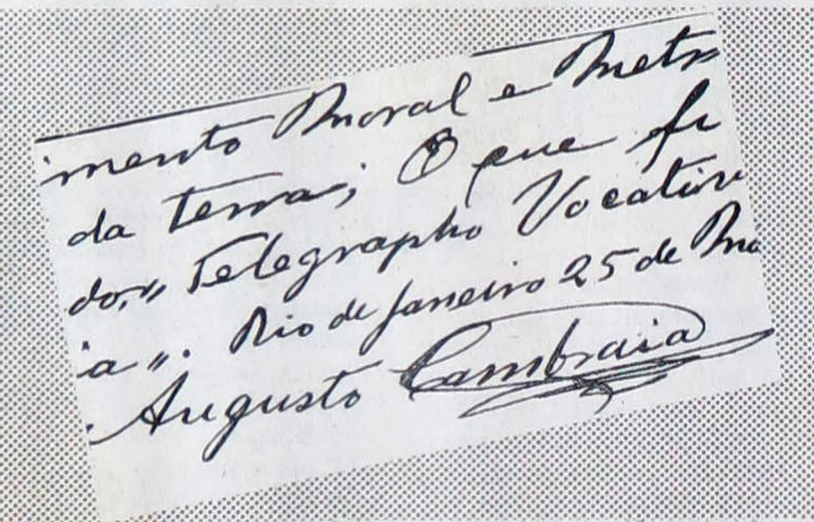 imento Moral e Metr
da terra; O que fi
do,,, Telegrapho Vocativo
ia ,,. Rio de Janeiro 25 de Ma
. Augusto Cambraia